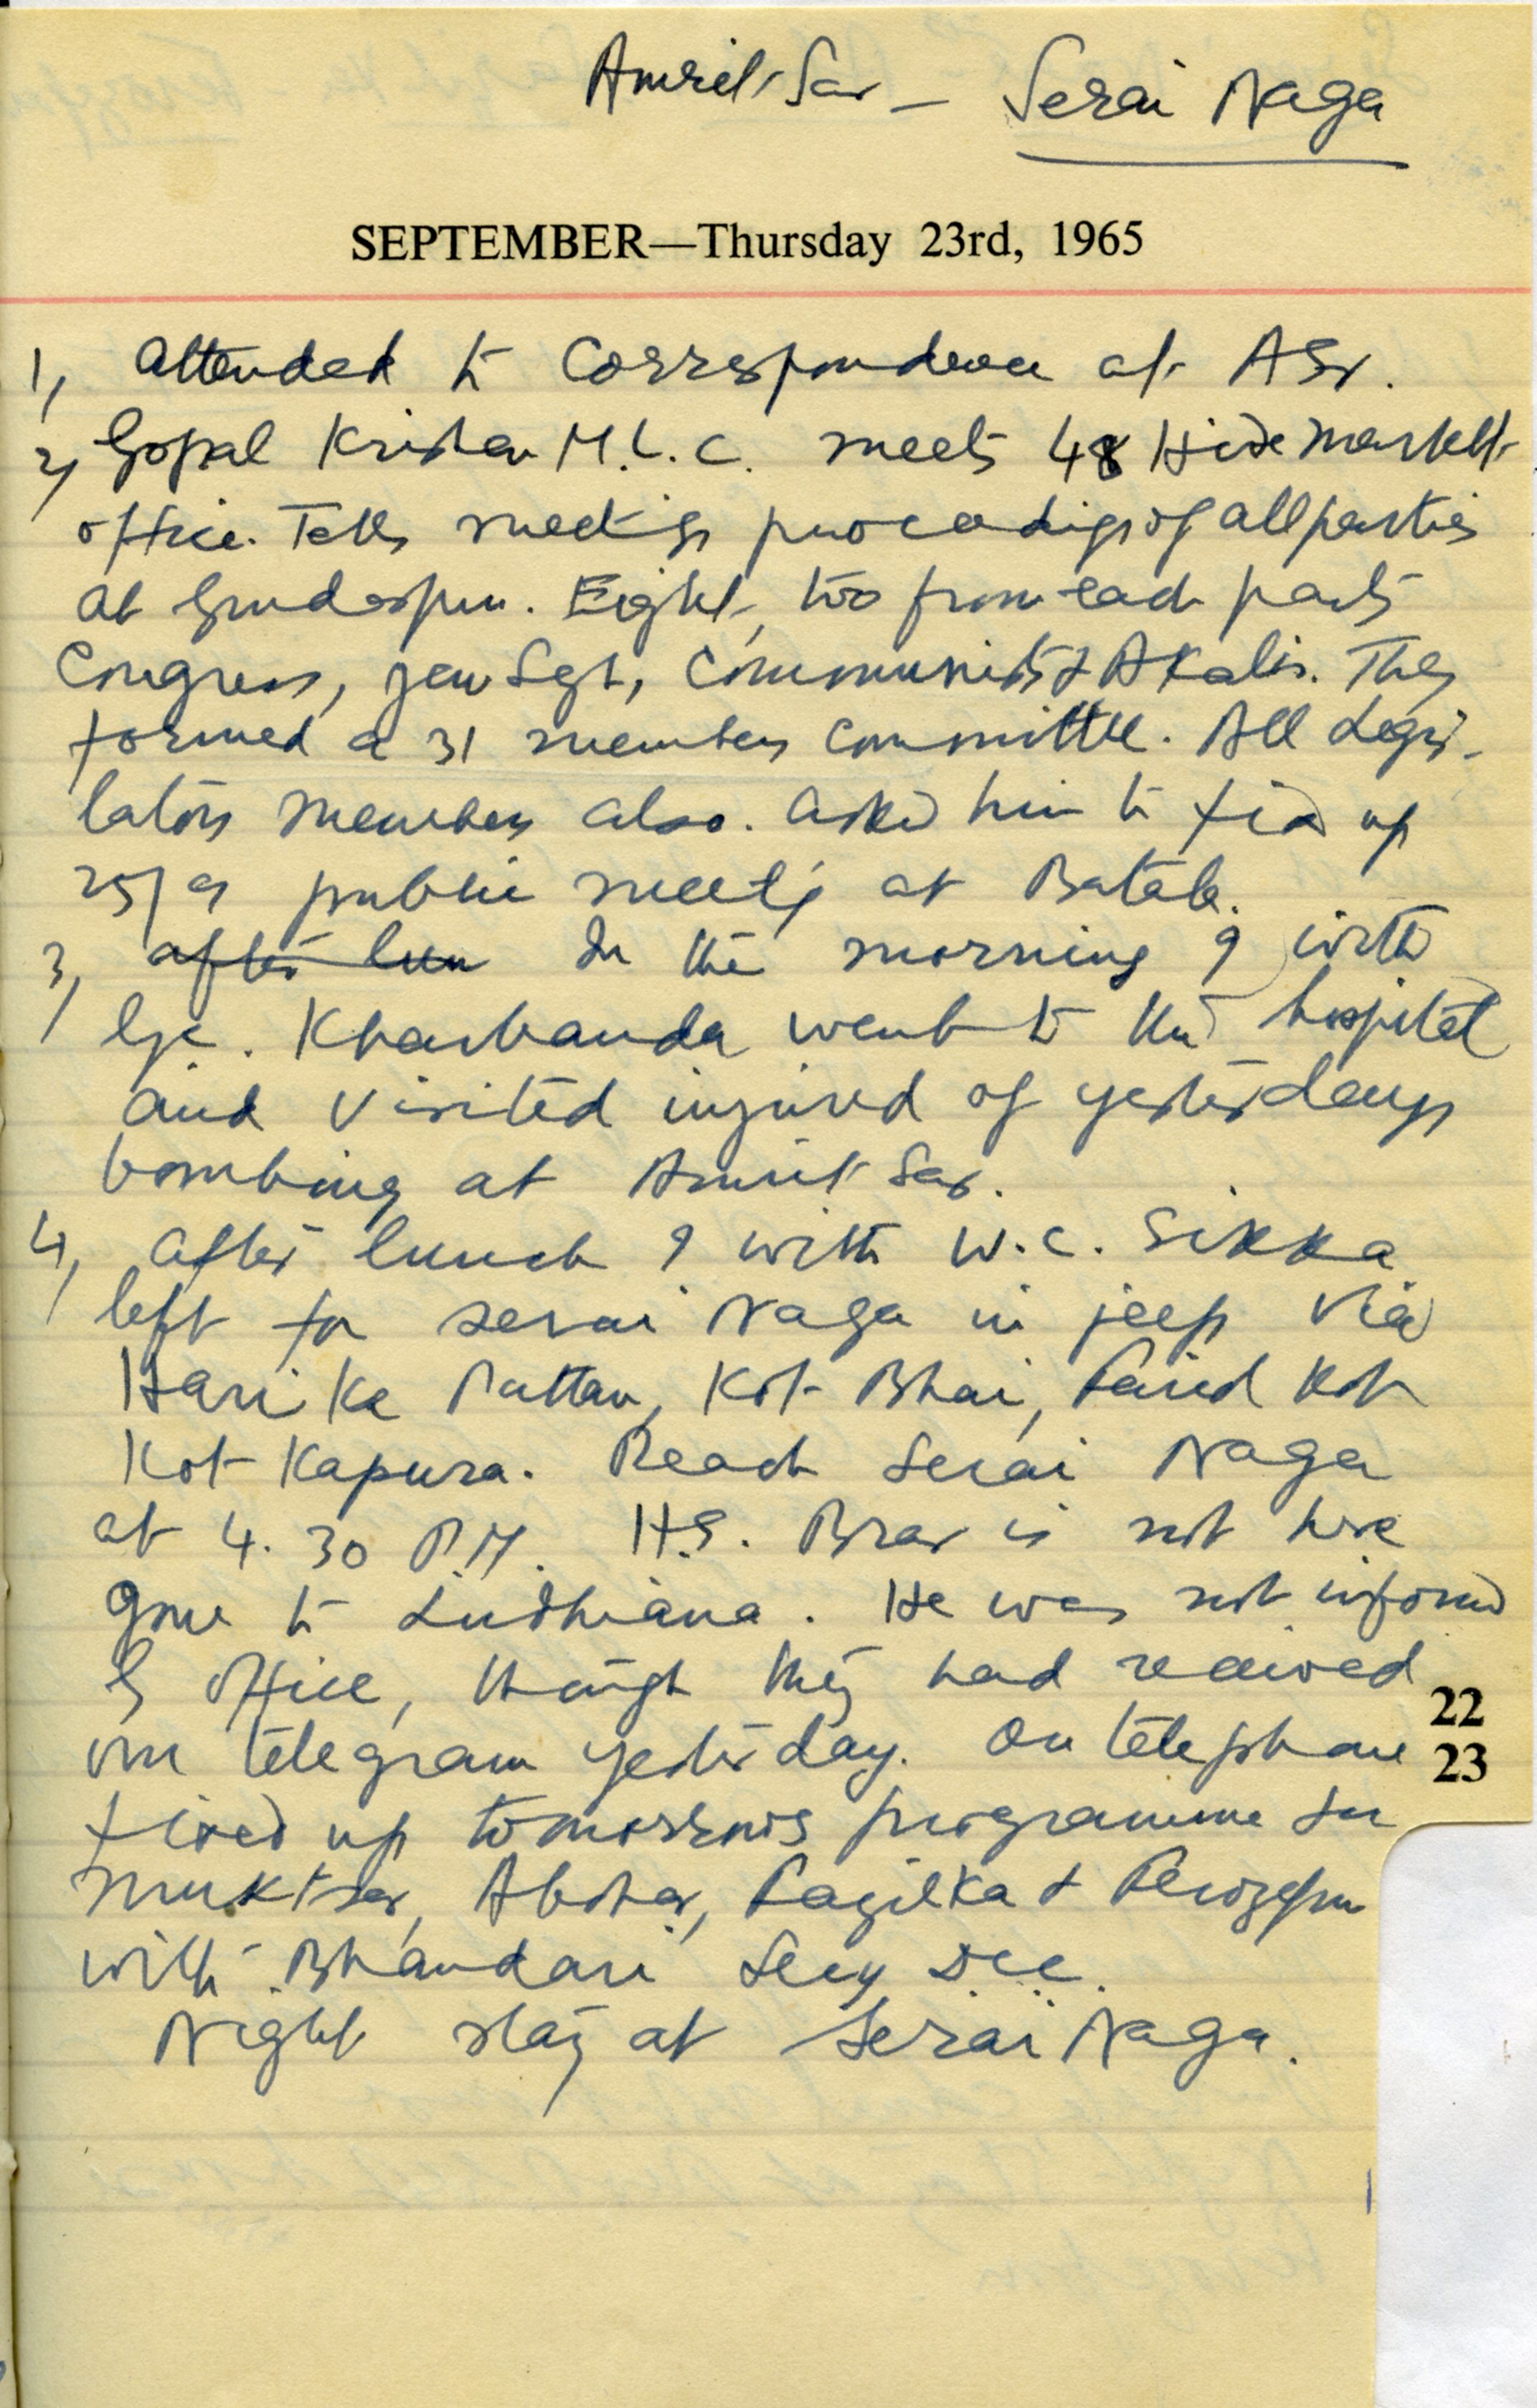 Amrit Sar - Serai Naga
SEPTEMBER—Thursday 23rd, 1965
1, Attended to Correspondence at ASr.
2, Gopal Krishan M.L.C. meets 48 Hide Markett
office. Tells meetings procedigs of all parties
at Gurdaspur. Eight, two from each party
Congress, Jan Sgh, Communists & Akalis. They
formed a 31 members committee. All Legis-
lators members also. Asked him to fix up
25/9 public meetg at Batala.
3, after lun In the morning I with
Kharbanda went to the hospital
and visited injured of yesterdays
bombing at Amrit Sar.
4, After lunch I with W.C. Sikka
left for Serai Naga in jeep via
Hari Ke Pattan, Kot Bhai, Farid Kot
Kot Kapura. Reach Serai Naga
at 4.30 P.M. H.S. Brar is not here
gone to Ludhiana. He was not informed
by office, though they had received
our telegram yesterday. On telephone
22
fixed up tomorrows programme for
23
Muktsar, Abohar, Fazilka & Ferozepur
with Bhandari Secy DCC.
Night stay at Serai Naga.